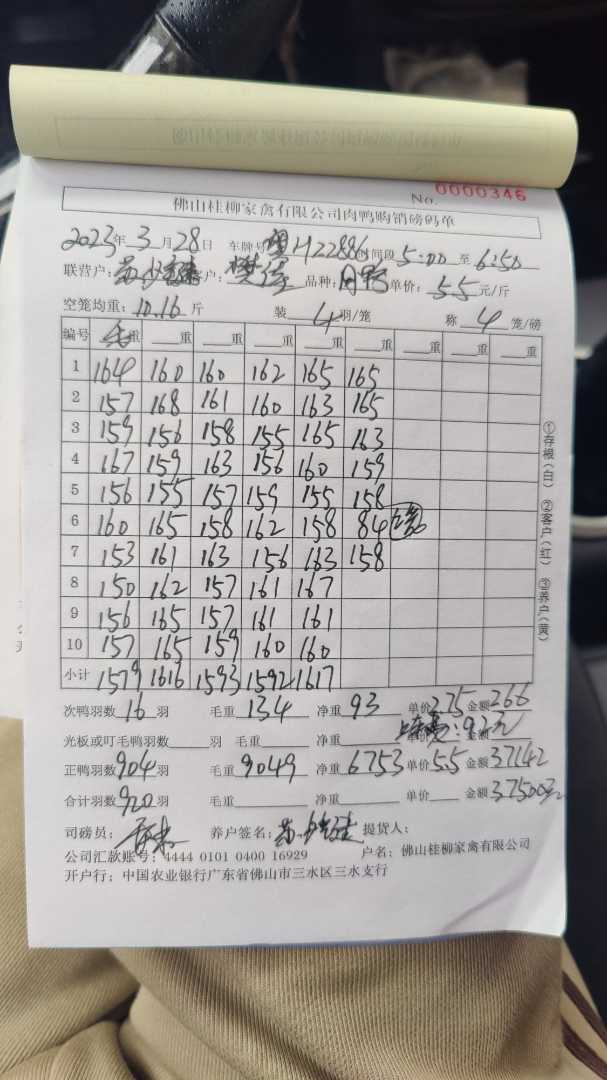 No. 0000346
佛山桂柳家禽有限公司肉鸭购销磅码单
2023年3月28日 车牌号 粤H22886 时间段 5:00 至 6:50
联营户: 苏 客户: 樊 品种: 肉鸭 单价: 5.5 元/斤
空笼均重: 10.16 斤 装 4 羽/笼 称 4 笼/磅
编号 毛重 重 重 重 重 重 重 重
1 164 160 160 162 165 165
2 157 168 161 160 163 165
3 159 156 158 155 165 163
4 167 159 163 156 160 159
5 156 155 157 159 155 158
6 160 165 158 162 158 84
7 153 161 163 156 163 158
8 150 162 157 161 167
9 156 165 157 161 161
10 157 165 159 160 160
小计 1579 1616 1593 1592 1617
①存根(白) ②客户(红) ③养户(黄)
次鸭羽数 16 羽 毛重 134 净重 93 单价 2.75 金额 266
光板或叮毛鸭羽数 羽 毛重 净重 单价 金额
: 92元
正鸭羽数 904 羽 毛重 9049 净重 6753 单价 5.5 金额 37142
合计羽数 920 羽 毛重 净重 单价 金额 37500元
司磅员: 养户签名: 苏 提货人:
公司汇款账号: 4444 0101 0400 16929 户名: 佛山桂柳家禽有限公司
开户行: 中国农业银行广东省佛山市三水区三水支行